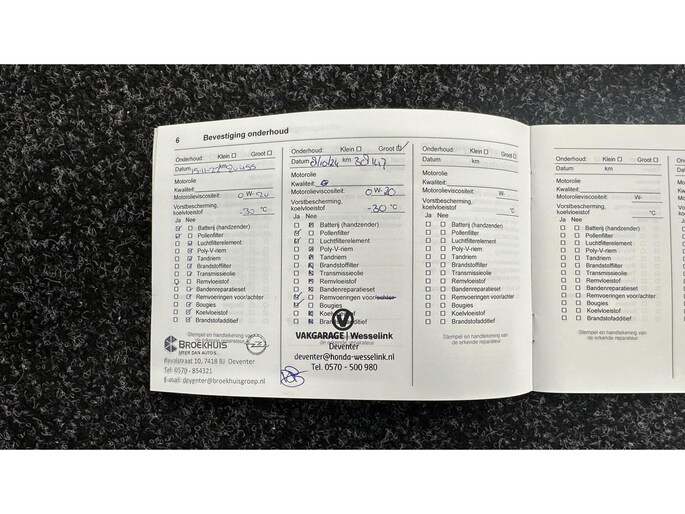 6 Bevestiging onderhoud
Onderhoud: Klein Groot
Datum km
Motorolie
Kwaliteit:
Motorolieviscositeit: 0 W-20
Vorstbescherming,
koelvloeistof -30 °C
Ja Nee
Batterij (handzender)
Pollenfilter
Luchtfilterelement
Poly-V-riem
Tandriem
Brandstoffilter
Transmissieolie
Remvloeistof
Bandenreparatieset
Remvoeringen voor/achter
Bougies
Koelvloeistof
Brandstofadditief
Stempel en handtekening van
de erkende reparateur
BROEKHUIS
MEER DAN AUTO'S...
7418 BJ Deventer
Tel: 0570 - 854321
E-mail: deventer@broekhuisgroep.nl
Onderhoud: Klein Groot
Datum 8/10/24 km 30147
Motorolie
Kwaliteit:
Motorolieviscositeit: 0 W-20
Vorstbescherming,
koelvloeistof -30 °C
Ja Nee
Batterij (handzender)
Pollenfilter
Luchtfilterelement
Poly-V-riem
Tandriem
Brandstoffilter
Transmissieolie
Remvloeistof
Bandenreparatieset
Remvoeringen voor/achter
Bougies
Koelvloeistof
Brandstofadditief
VAKGARAGE | Wesselink
de erkende reparateur
Deventer
deventer@honda-wesselink.nl
Tel. 0570 - 500 980
Onderhoud: Klein Groot
Datum km
Motorolie
Kwaliteit:
Motorolieviscositeit: W-
Vorstbescherming,
koelvloeistof °C
Ja Nee
Batterij (handzender)
Pollenfilter
Luchtfilterelement
Poly-V-riem
Tandriem
Brandstoffilter
Transmissieolie
Remvloeistof
Bandenreparatieset
Remvoeringen voor/achter
Bougies
Koelvloeistof
Brandstofadditief
Stempel en handtekening van
de erkende reparateur
Onderhoud: Klein Groot
Datum km
Motorolie
Kwaliteit:
Motorolieviscositeit: W-
Vorstbescherming,
koelvloeistof °C
Ja Nee
Batterij (handzender)
Pollenfilter
Luchtfilterelement
Poly-V-riem
Tandriem
Brandstoffilter
Transmissieolie
Remvloeistof
Bandenreparatieset
Remvoeringen voor/achter
Bougies
Koelvloeistof
Brandstofadditief
Stempel en handtekening van
de erkende reparateur